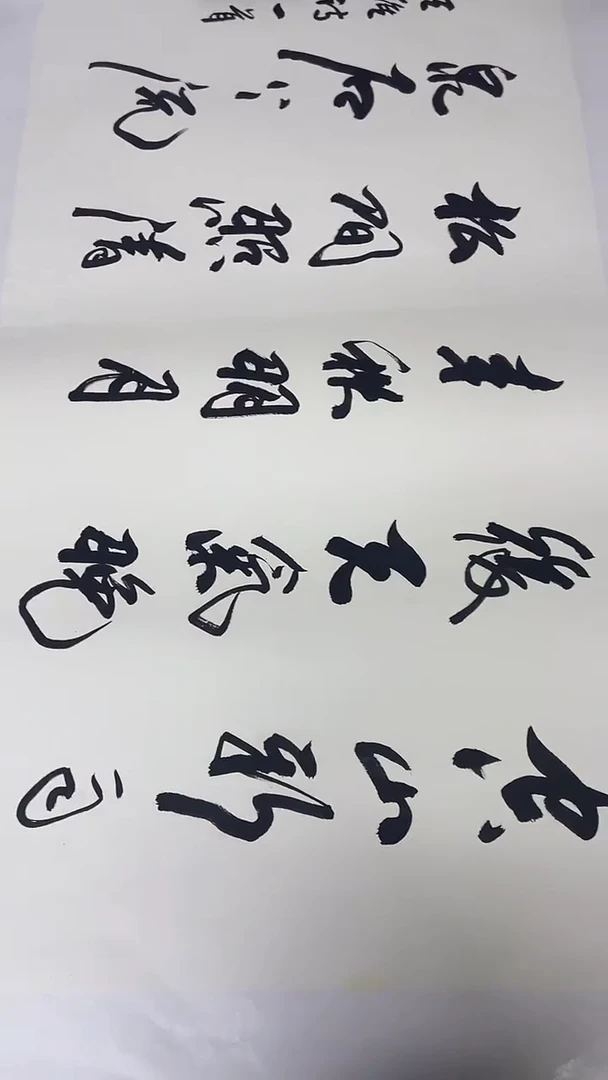 空山新雨
後天氣晚
來秋明月
松間照清
泉石上流
王維詩一首